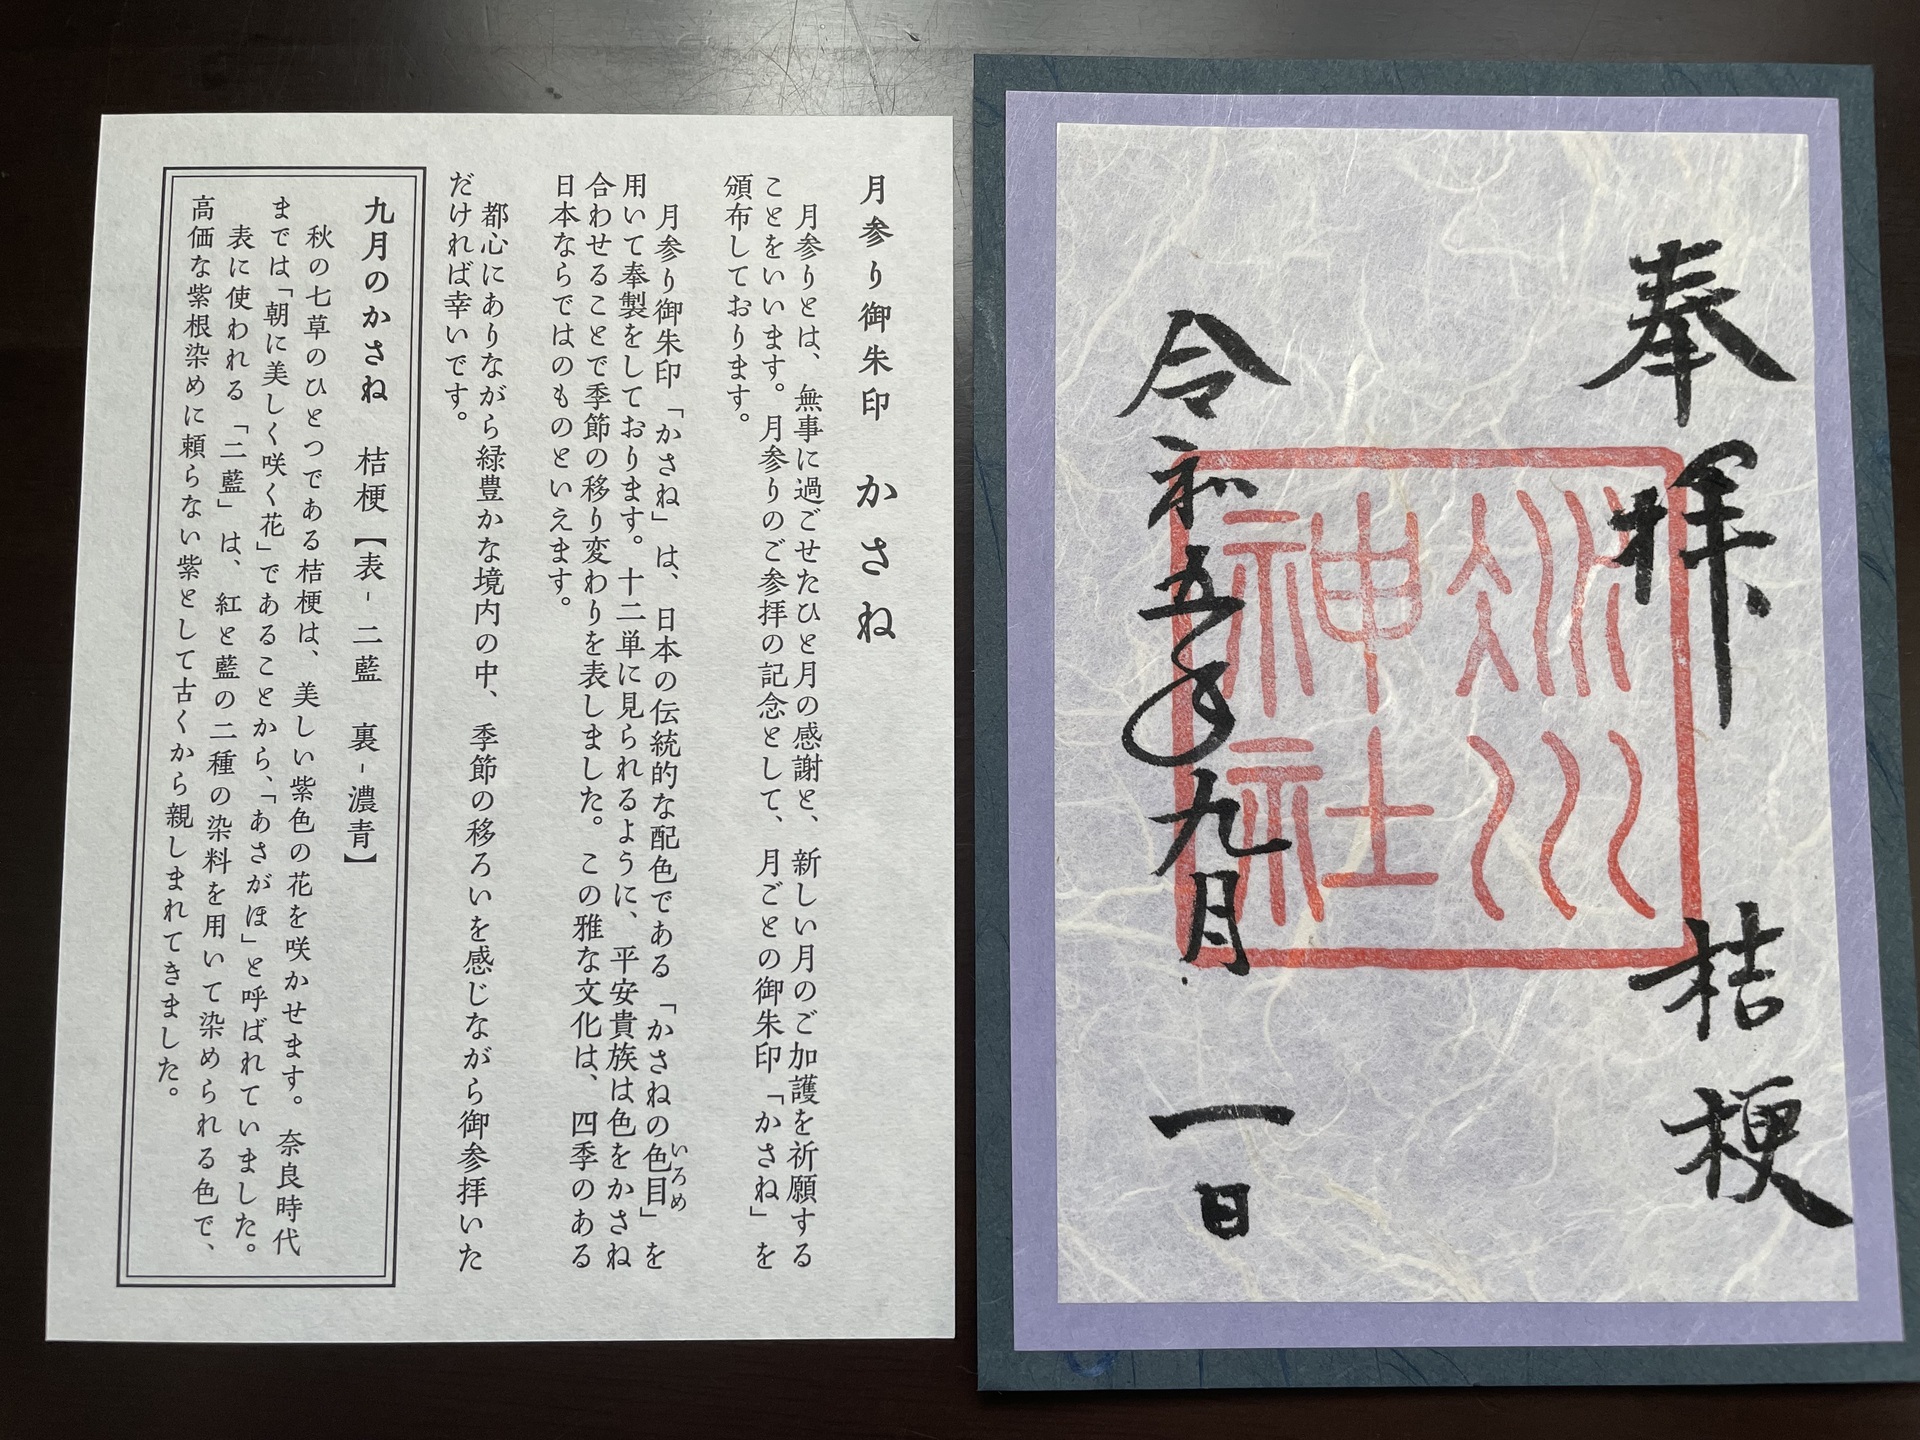 奉拝 桔梗
氷川
神社
令和五年九月一日
月参り御朱印 かさね
月参りとは、無事に過ごせたひと月の感謝と、新しい月のご加護を祈願する
ことをいいます。月参りのご参拝の記念として、月ごとの御朱印「かさね」を
頒布しております。
いろめ
月参り御朱印「かさね」は、日本の伝統的な配色である「かさねの色目」を
用いて奉製をしております。十二単に見られるように、平安貴族は色をかさね
合わせることで季節の移り変わりを表しました。この雅な文化は、四季のある
日本ならではのものといえます。
都心にありながら緑豊かな境内の中、季節の移ろいを感じながら御参拝いた
だければ幸いです。
九月のかさね 桔梗【表-二藍 裏-濃青】
秋の七草のひとつである桔梗は、美しい紫色の花を咲かせます。奈良時代
までは「朝に美しく咲く花」であることから、「あさがほ」と呼ばれていました。
表に使われる「二藍」は、紅と藍の二種の染料を用いて染められる色で、
高価な紫根染めに頼らない紫として古くから親しまれてきました。